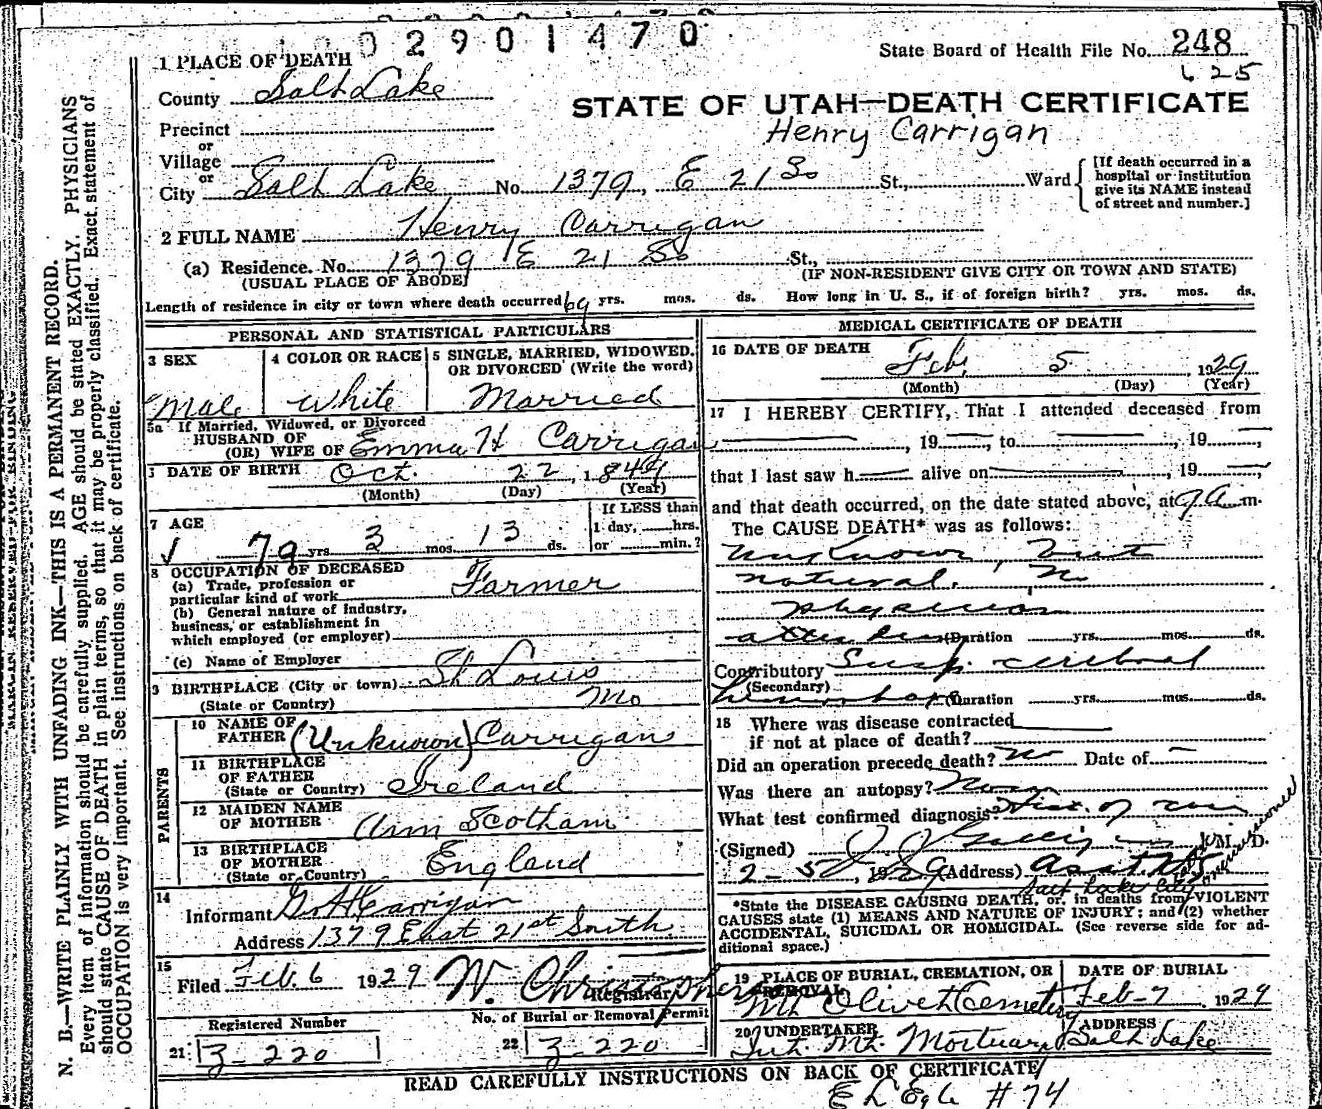 02901470
State Board of Health File No. 248
625
1 PLACE OF DEATH
County Salt Lake
STATE OF UTAH—DEATH CERTIFICATE
Henry Carrigan
Precinct
or
Village
or
City Salt Lake No. 1379, E 21 So St., Ward
[If death occurred in a
hospital or institution
give its NAME instead
of street and number.]
2 FULL NAME Henry Carrigan
(a) Residence. No. 1379 E 21 So St.,
(USUAL PLACE OF ABODE) (IF NON-RESIDENT GIVE CITY OR TOWN AND STATE)
Length of residence in city or town where death occurred 69 yrs. mos. ds. How long in U. S., if of foreign birth? yrs. mos. ds.
PERSONAL AND STATISTICAL PARTICULARS
3 SEX
Male
4 COLOR OR RACE
White
5 SINGLE, MARRIED, WIDOWED,
OR DIVORCED (Write the word)
Married
5a If Married, Widowed, or Divorced
HUSBAND OF
(OR) WIFE OF Emma H Carrigan
DATE OF BIRTH Oct. 22, 1849
(Month) (Day) (Year)
7 AGE
79 yrs. 3 mos. 13 ds.
If LESS than
1 day, hrs.
or min.?
8 OCCUPATION OF DECEASED
(a) Trade, profession or
particular kind of work Farmer
(b) General nature of industry,
business, or establishment in
which employed (or employer)
(c) Name of Employer
9 BIRTHPLACE (City or town) St Louis
(State or Country) Mo
PARENTS
10 NAME OF
FATHER (Unknown) Carrigan
11 BIRTHPLACE
OF FATHER
(State or Country) Ireland
12 MAIDEN NAME
OF MOTHER Ann Scotham
13 BIRTHPLACE
OF MOTHER
(State or Country) England
14
Informant Carrigan
Address 1379 East 21st South
15
Filed Feb. 6 1929 W. Christopherson
Registrar
Registered Number
21 3-220
No. of Burial or Removal Permit
22 3-220
MEDICAL CERTIFICATE OF DEATH
16 DATE OF DEATH Feb. 5, 1929
(Month) (Day) (Year)
17 I HEREBY CERTIFY, That I attended deceased from
, 19 , to , 19 ,
that I last saw h alive on , 19
and that death occurred, on the date stated above, at 9 A m.
The CAUSE DEATH* was as follows:
unknown but
natural. No
physician
attending (Duration yrs. mos. ds.
Contributory Susp. cerebral
(Secondary)
hemorrhage (Duration yrs. mos. ds.
18 Where was disease contracted
if not at place of death?
Did an operation precede death? no Date of —
Was there an autopsy?
What test confirmed diagnosis?
(Signed) M. D.
2-5, 1929 (Address) Asst.
Salt Lake City
*State the DISEASE CAUSING DEATH, or, in deaths from VIOLENT
CAUSES state (1) MEANS AND NATURE OF INJURY; and (2) whether
ACCIDENTAL, SUICIDAL OR HOMICIDAL. (See reverse side for ad-
ditional space.)
19 PLACE OF BURIAL, CREMATION, OR
REMOVAL
Mt Olivet Cemetery
DATE OF BURIAL
Feb-7, 1929
20 UNDERTAKER
Mt. Mortuary
ADDRESS
Salt Lake
READ CAREFULLY INSTRUCTIONS ON BACK OF CERTIFICATE
#74
MARGIN RESERVED FOR BINDING
N. B.—WRITE PLAINLY WITH UNFADING INK—THIS IS A PERMANENT RECORD.
Every item of information should be carefully supplied. AGE should be stated EXACTLY. PHYSICIANS
should state CAUSE OF DEATH in plain terms, so that it may be properly classified. Exact statement of
OCCUPATION is very important. See instructions on back of certificate.